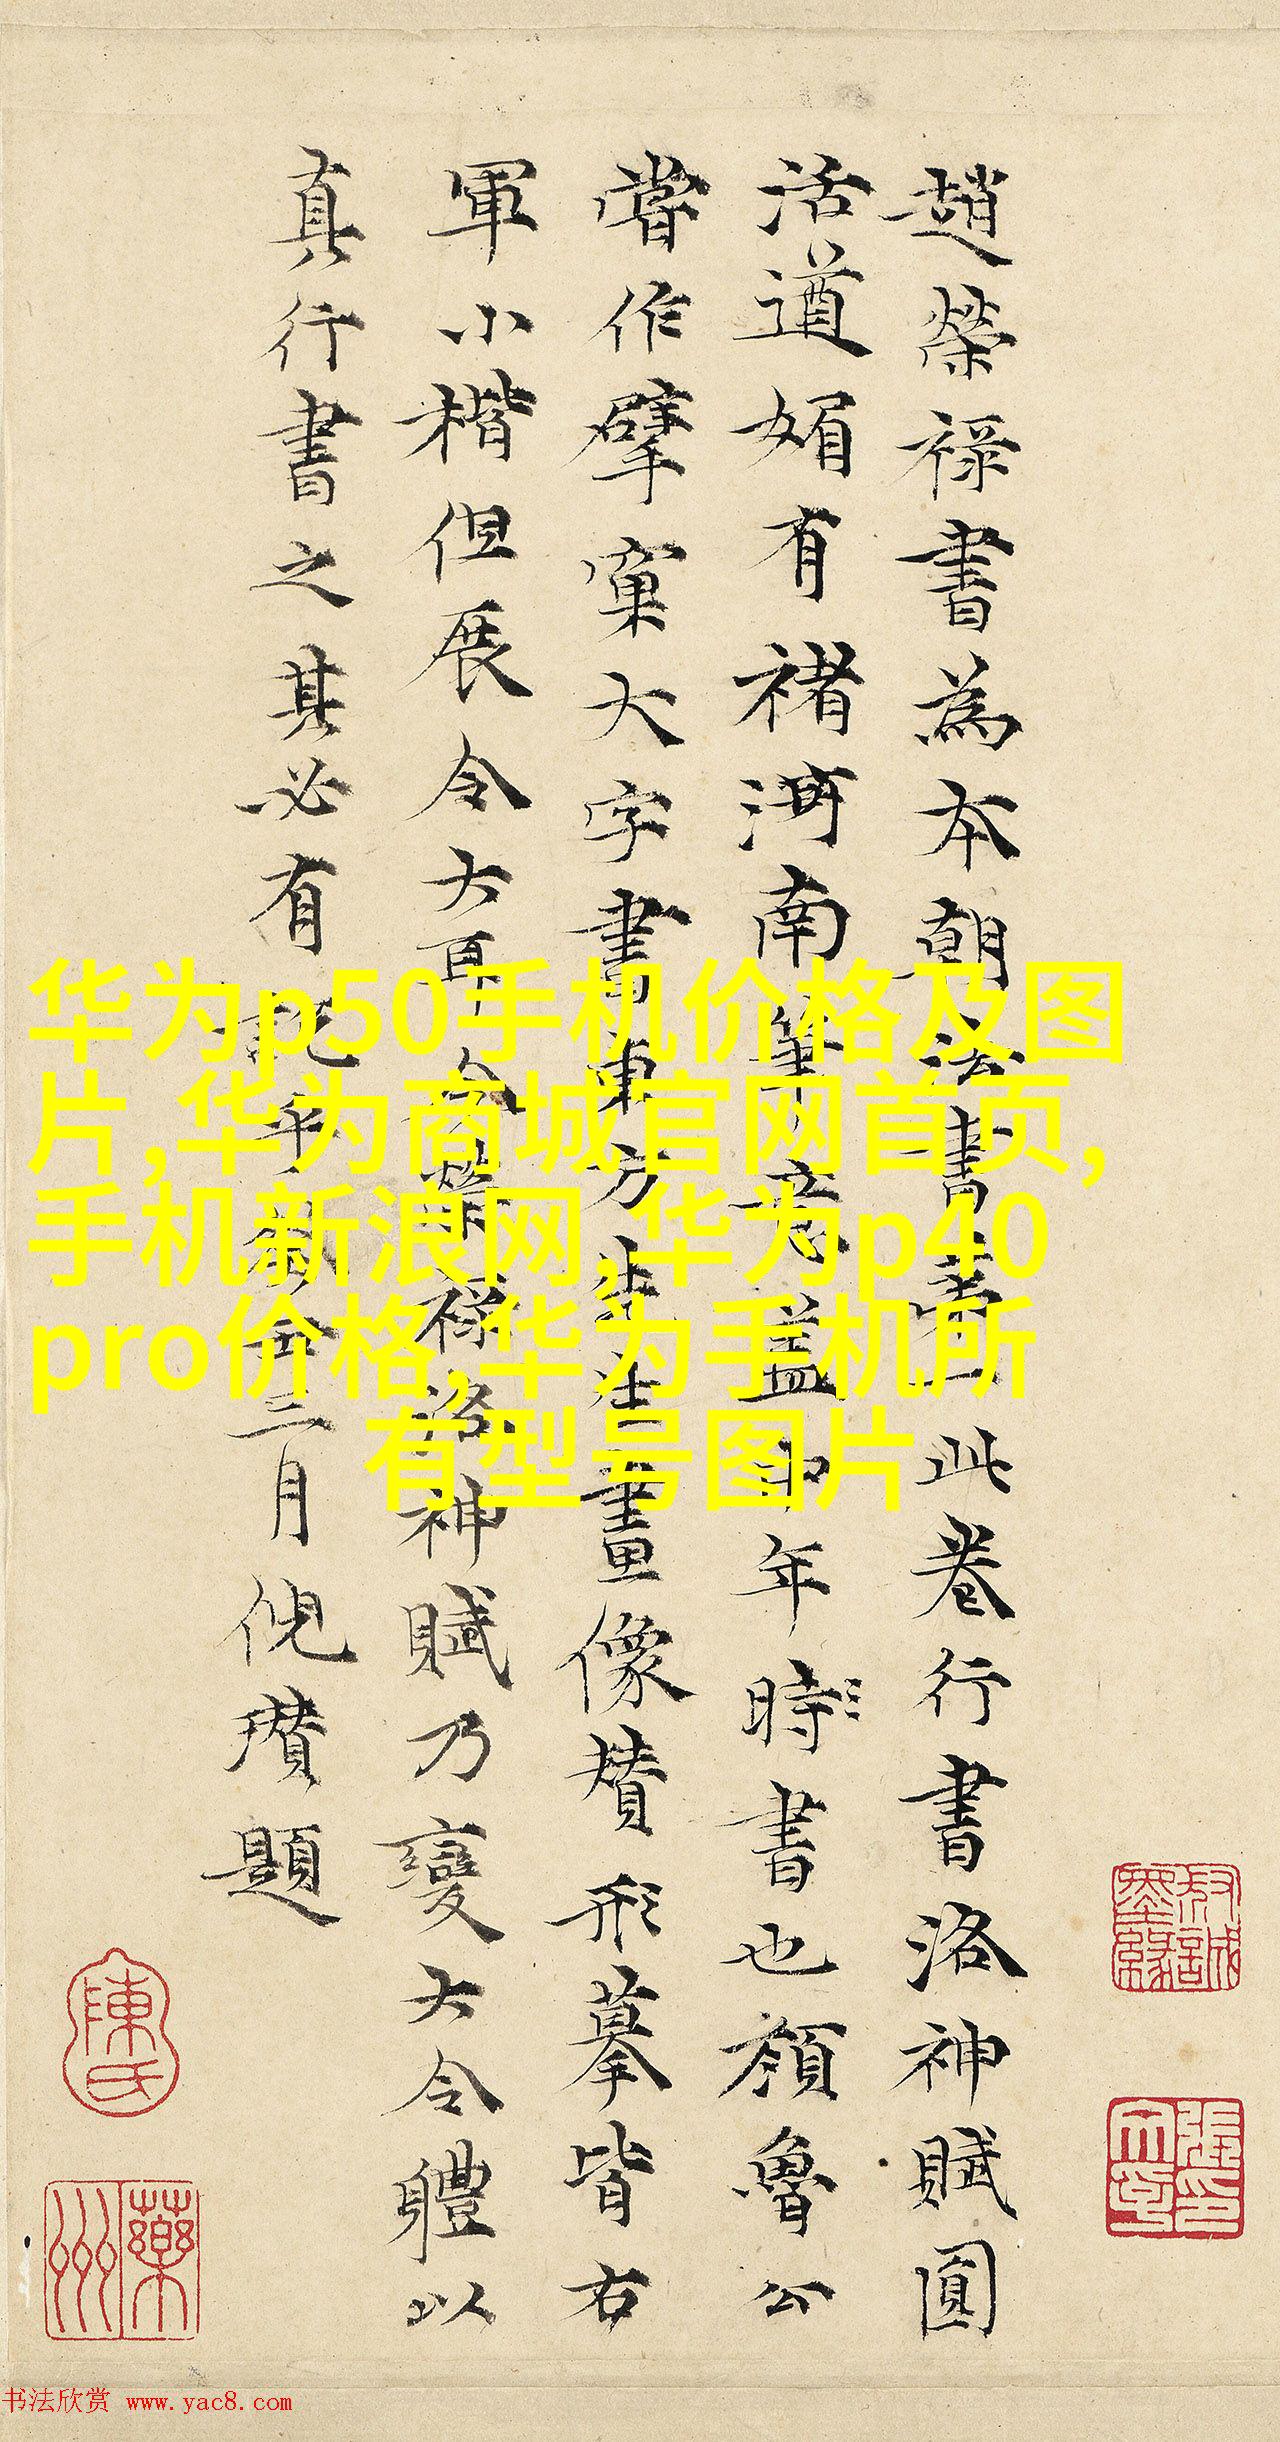 趙榮祿書為本朝法書第一此卷行書洛神賦圓
活遒媚有褚河南筆意蓋中年時書也顏魯公
嘗作擘窠大字書東方朔畫像贊形摹皆右
軍小楷但展令大耳今榮祿洛神賦乃變大令體以
真行書之其必有
三月倪瓚題
华为p50手机价格及图
片,华为商城官网首页,
手机新浪网,华为p40
pro价格,华为手机所
有型号图片
陳氏
蘂州
书法欣赏 www.yac8.com